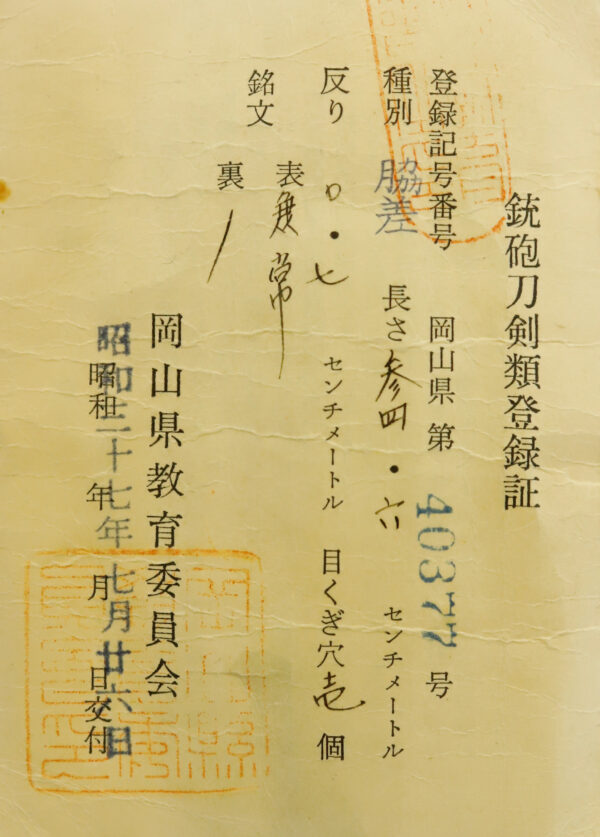 銃砲刀剣類登録証
登録記号番号 岡山県第 40377 号
種別 脇差 長さ 参四・六 センチメートル
反り 〇・七 センチメートル 目くぎ穴 壱 個
銘文 表 兼常
裏 /
岡山県教育委員会
昭和 年 月 日交付
昭和三十七年七月廿六日